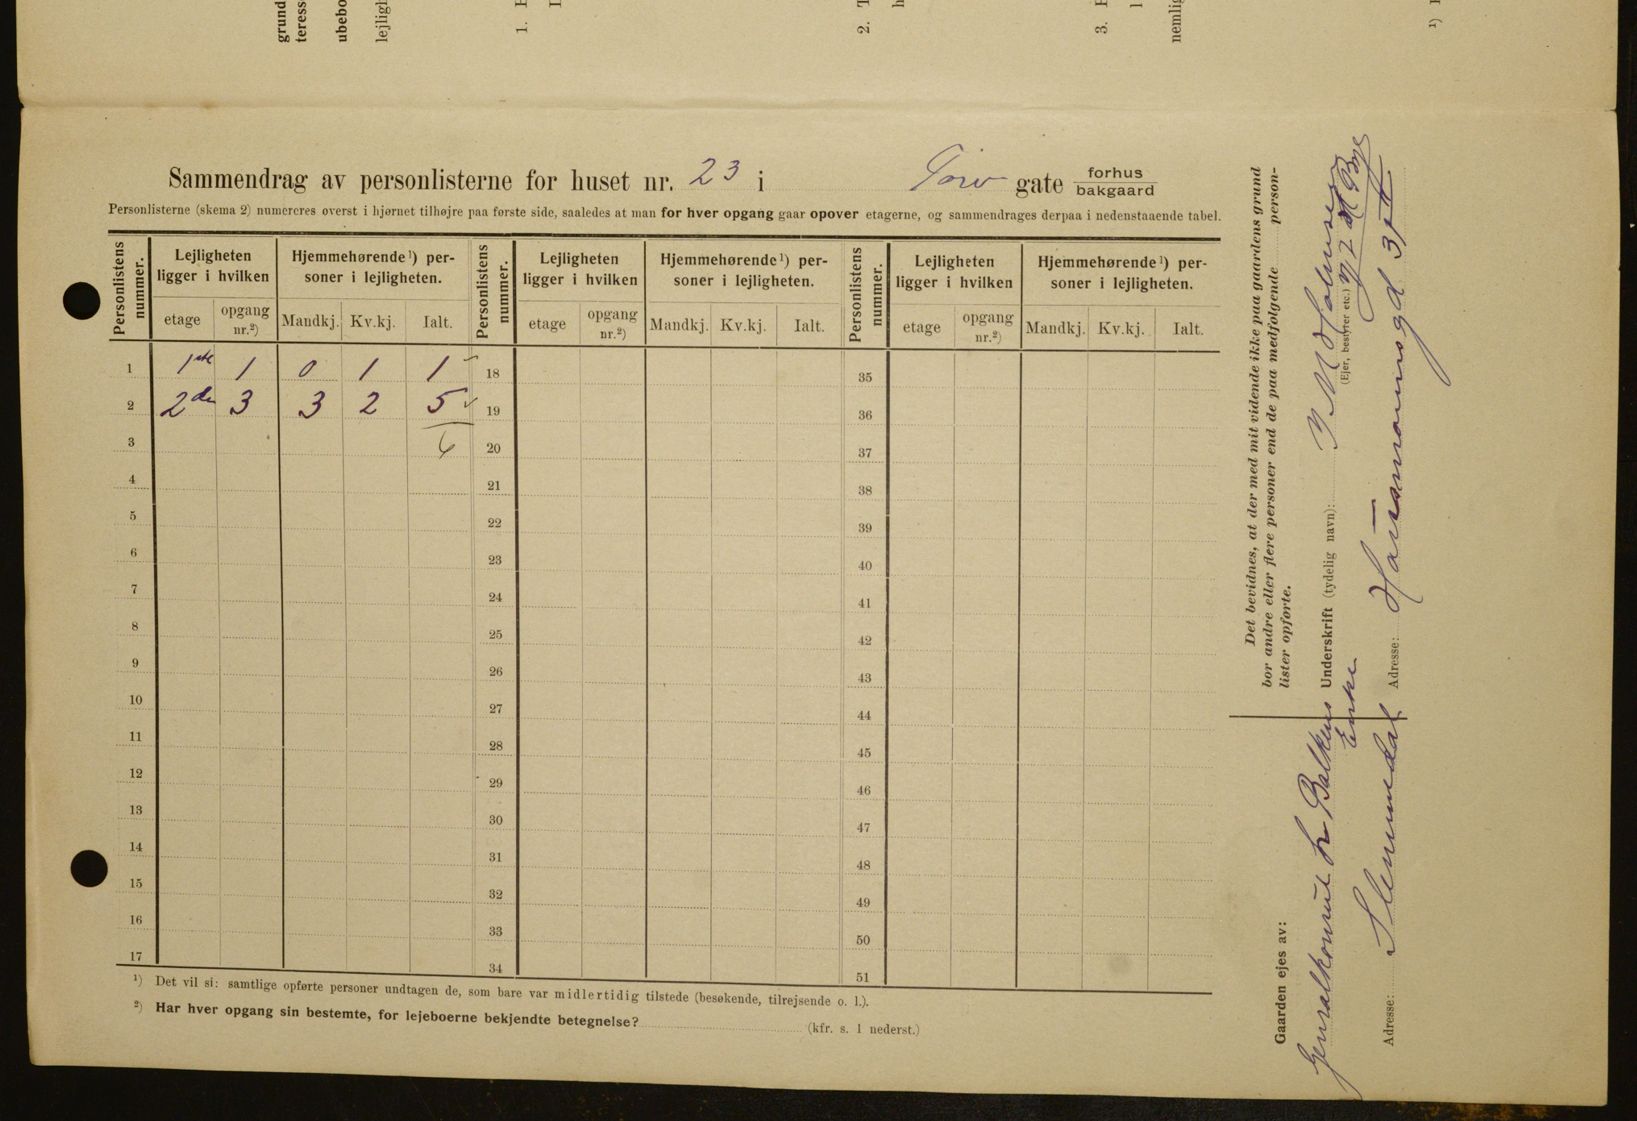 grund
teress
ubebo
lejligh
1.
2.
3.
nemlig
1)
Sammendrag av personlisterne for huset nr. 23 i Torv gate forhus
bakgaard
Personlisterne (skema 2) numereres øverst i hjørnet tilhøjre paa første side, saaledes at man for hver opgang gaar opover etagerne, og sammendrages derpaa i nedenstaaende tabel.
Personlistens nummer. Lejligheten ligger i hvilken Hjemmehørende¹) personer i lejligheten. Personlistens nummer. Lejligheten ligger i hvilken Hjemmehørende¹) personer i lejligheten. Personlistens nummer. Lejligheten ligger i hvilken Hjemmehørende¹) personer i lejligheten.
etage opgang nr.²) Mandkj. Kv.kj. Ialt. etage opgang nr.²) Mandkj. Kv.kj. Ialt. etage opgang nr.²) Mandkj. Kv.kj. Ialt.
1 1ste 1 0 1 1 18 35
2 2den 3 3 2 5 19 36
3 6 20 37
4 21 38
5 22 39
6 23 40
7 24 41
8 25 42
9 26 43
10 27 44
11 28 45
12 29 46
13 30 47
14 31 48
15 32 49
16 33 50
17 34 51
¹) Det vil si: samtlige opførte personer undtagen de, som bare var midlertidig tilstede (besøkende, tilrejsende o. l.).
²) Har hver opgang sin bestemte, for lejeboerne bekjendte betegnelse? (kfr. s. 1 nederst.)
Det bevidnes, at der med mit vidende ikke paa gaardens grund
bor andre eller flere personer end de paa medfølgende person-
lister opførte.
Underskrift (tydelig navn):
(Ejer, bestyrer etc.)
Adresse: 3
Gaarden ejes av:
Balkens
Enke
Adresse: Slemmedal